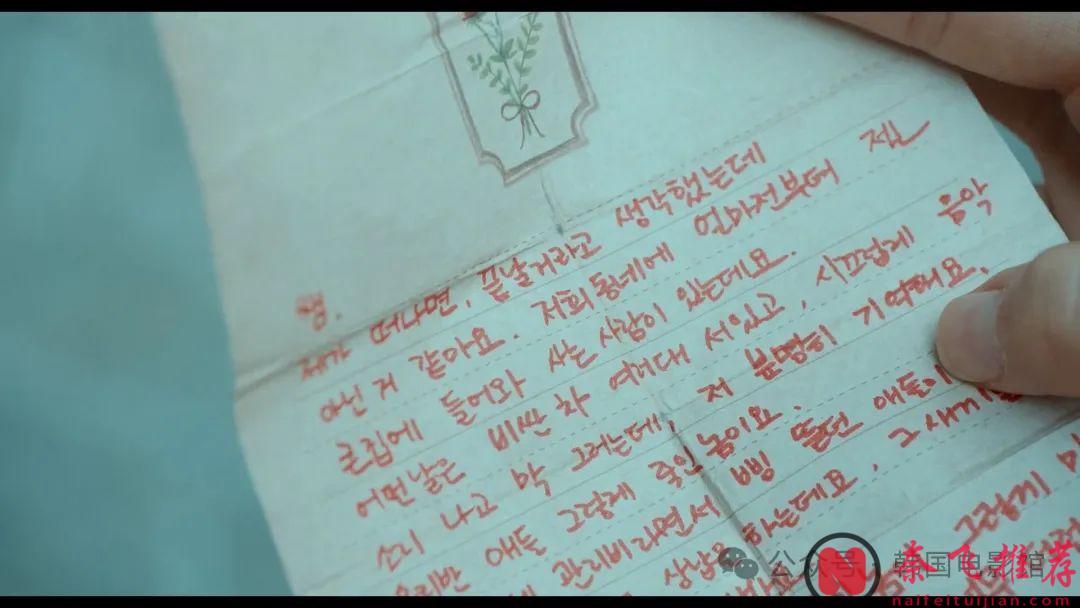 쌤.
제가 떠나면, 끝날거라고 생각했는데
아닌 거 같아요. 저희동네에 얼마전부터 젤
큰집에 들어와 사는 사람이 있는데요.
어떤날은 비싼차 여러대 서있고, 시끄럽게 음악
소리 나고 막 그러는데, 저 분명히 기억해요.
우리반 애들 그렇게 만든 놈이요.
관리비라면서 삥 뜯던 애들이
상납 하는데요. 그새끼
그렇게
公众号·韩国电影馆
秦飞推荐
naifeitujian.com